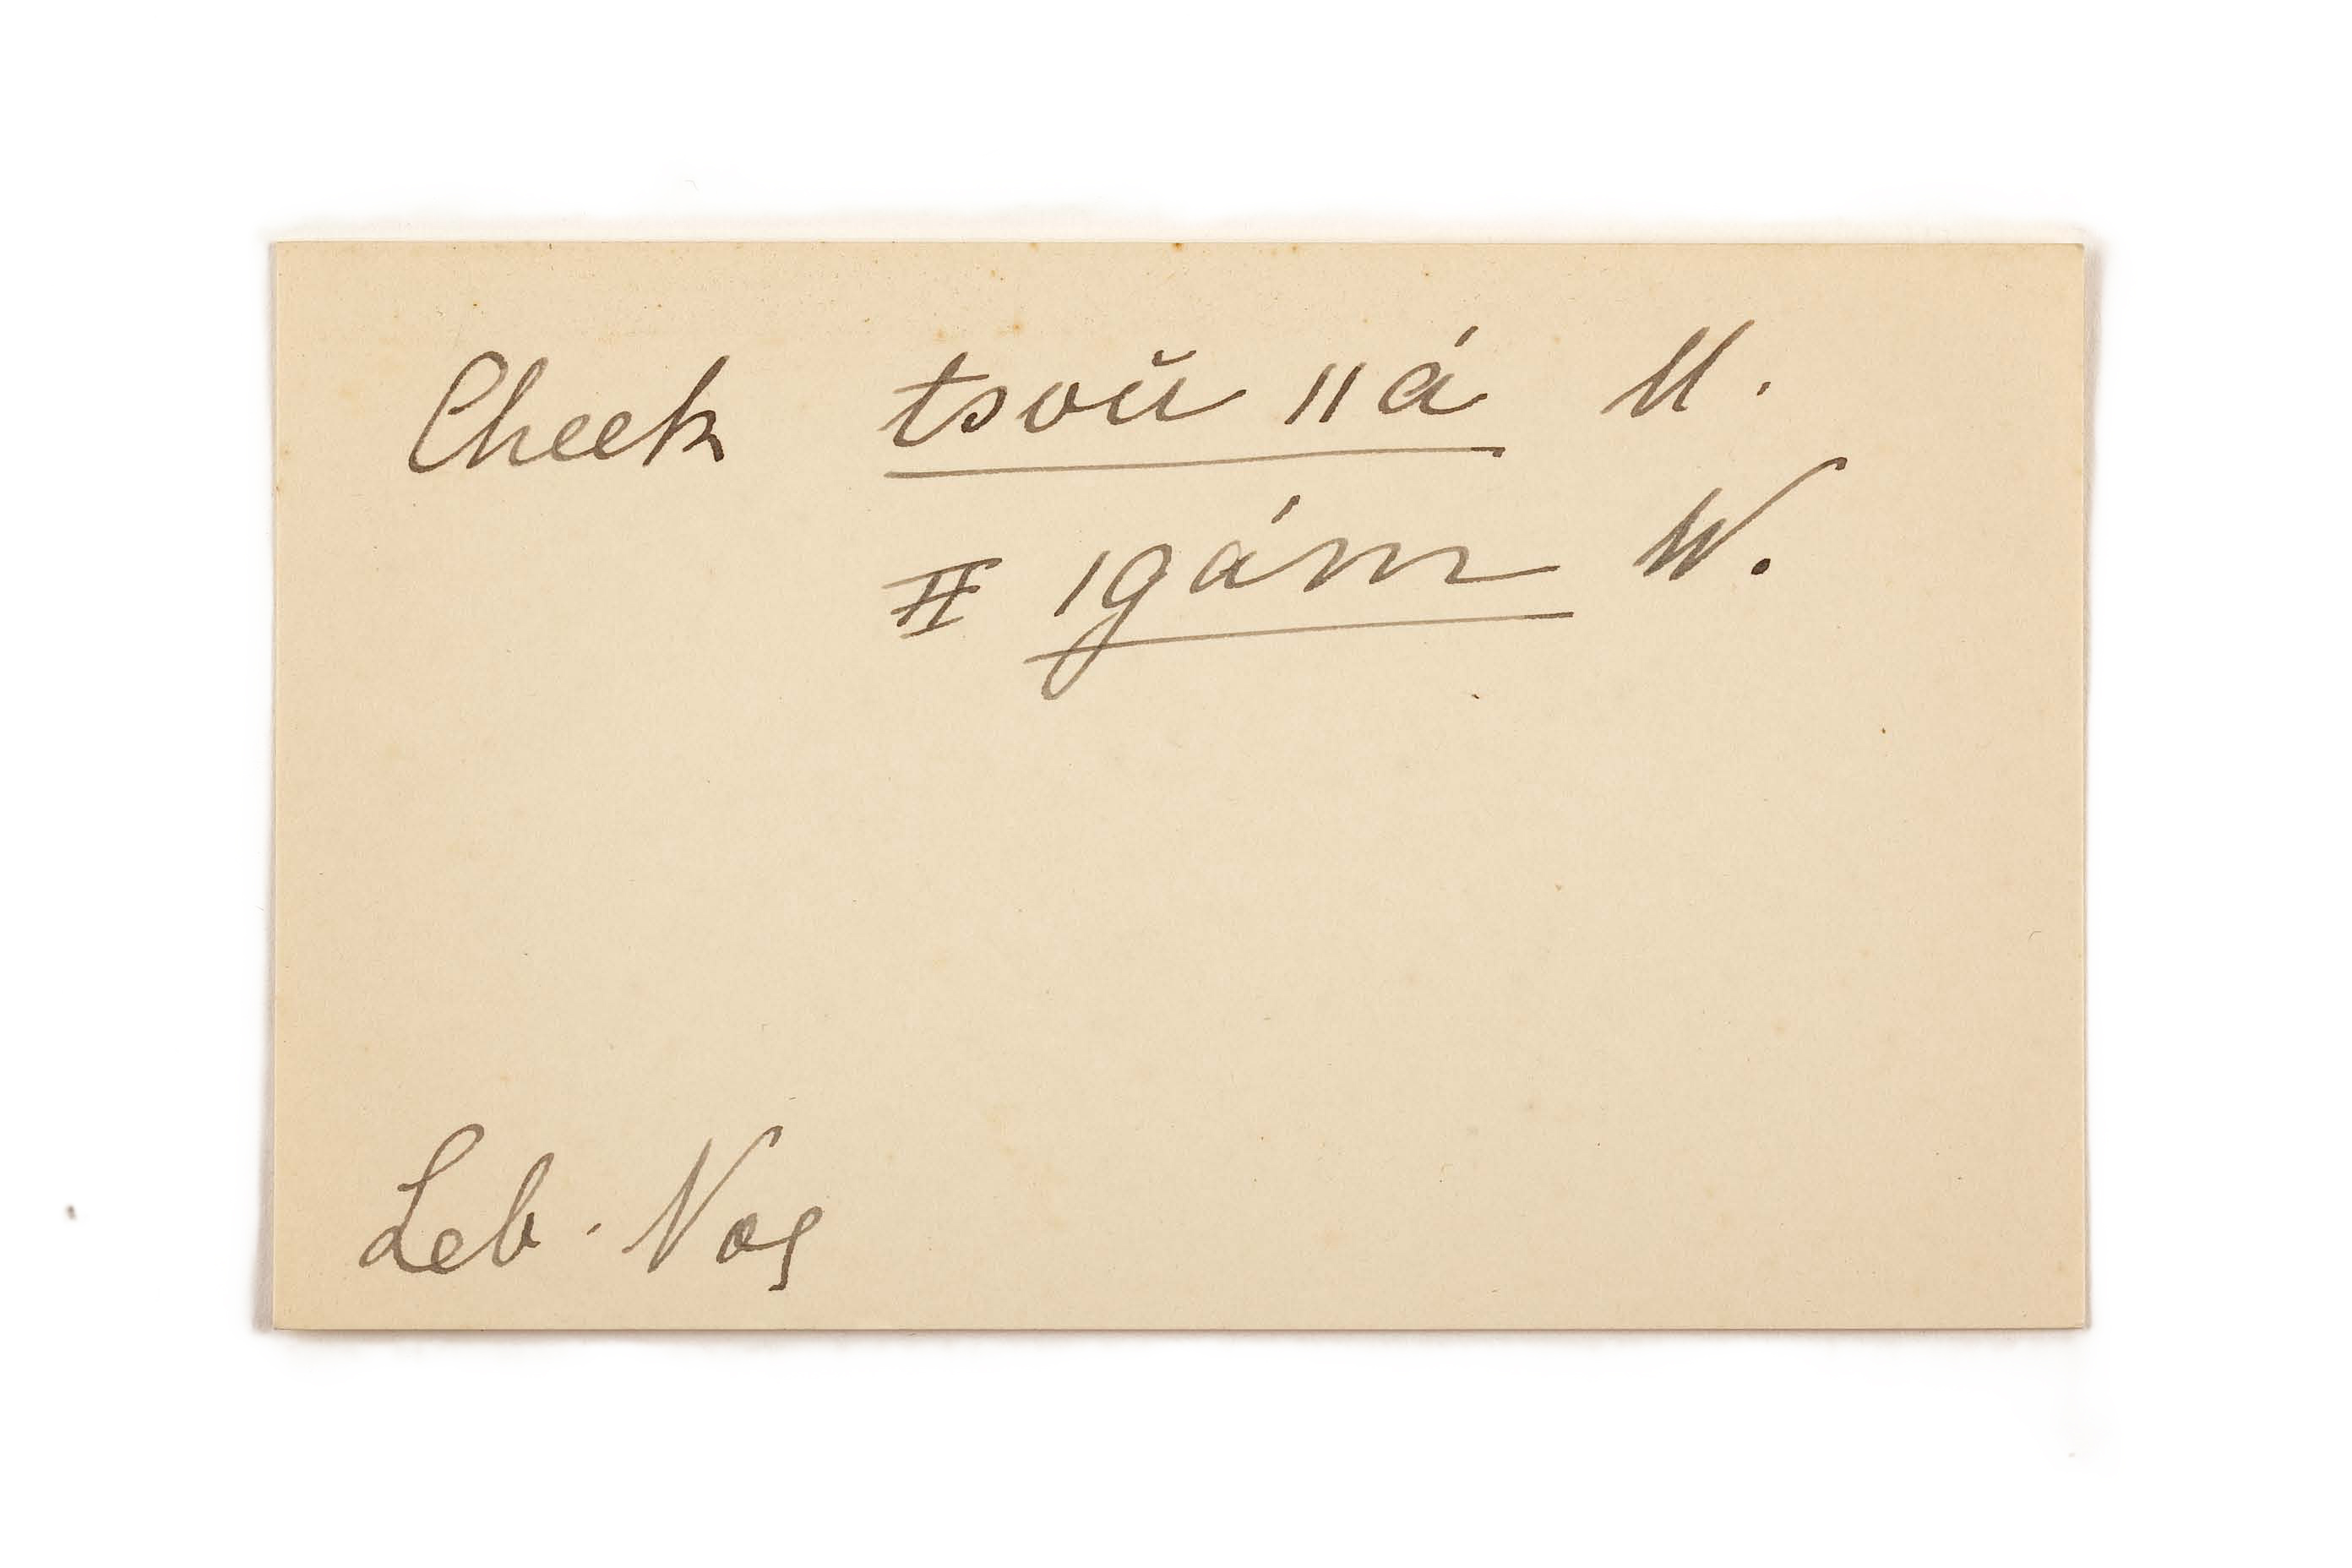 Cheek tsoŭ ǁá M.
II ǀgám W.
Leb. Nos